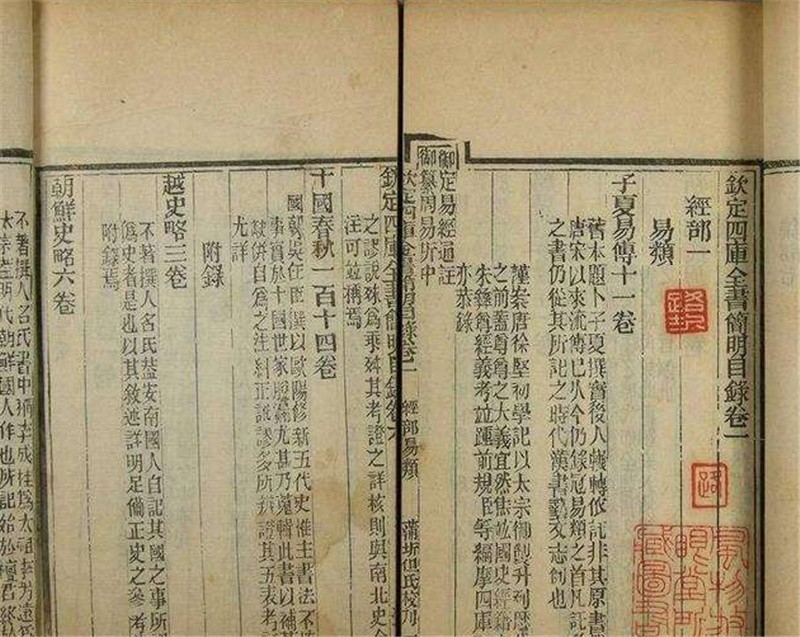 欽定四庫全書簡明目錄卷一
經部一
易類
子夏易傳十一卷
舊本題卜子夏撰實後人輾轉依託非其原書
唐宋以來流傳已久今仍錄冠易類之首凡託
之書仍從其所託之時代漢書藝文志例也
謹案唐徐堅初學記以太宗御製升列歷
之前蓋尊尊之大義宜然焦竑國史經籍
朱彝尊經義考竝踵前規臣等編摩四庫
亦恭錄
御定易經通註
御纂周易折中
欽定四庫全書簡明目錄卷一 經部易類 蒲圻但氏校刊
欽定四庫全書簡明目錄卷六
之謬說殊為乖舛其考證之詳核則與南北史
注可竝稱焉
十國春秋一百十四卷
國朝吳任臣撰以歐陽修新五代史惟主書法不
事實於十國世家脫漏尤甚乃蒐輯此書以補
缺併自為之注糾正訛謬多所辨證其五表考
尤詳
附錄
越史略三卷
不著撰人名氏蓋安南國人自記其國之事所
偽史者是也以其敘述詳明足備正史之參考
附錄焉
朝鮮史略六卷
不著撰人名氏書中稱李成桂為太祖李芳遠為
太宗蓋明代朝鮮國人作也所記始於檀君終